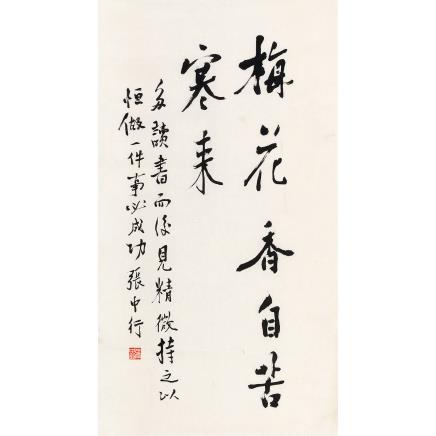 梅花香自苦
寒来
多讀書而後見精微持之以
恒做一件事必成功張中行